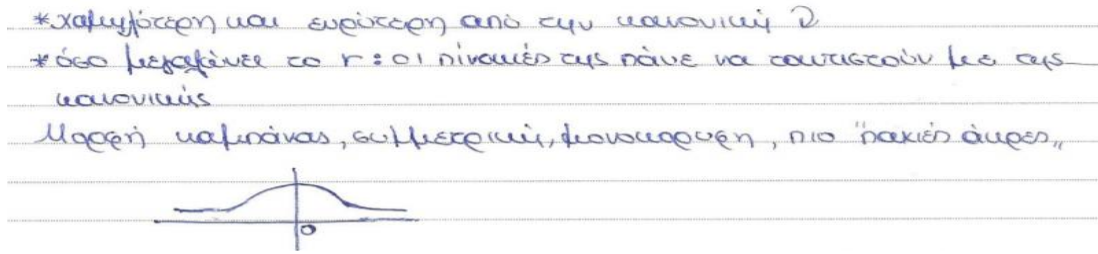 *χαμηλότερη και ευρύτερη από την κανονική
*όσο μεγαλώνει το r : οι πίνακές της πάνε να ταυτιστούν με της
κανονικής
Μορφή καμπάνας, συμμετρική, μονοκόρυφη, πιο "παχιές άκρες„
0